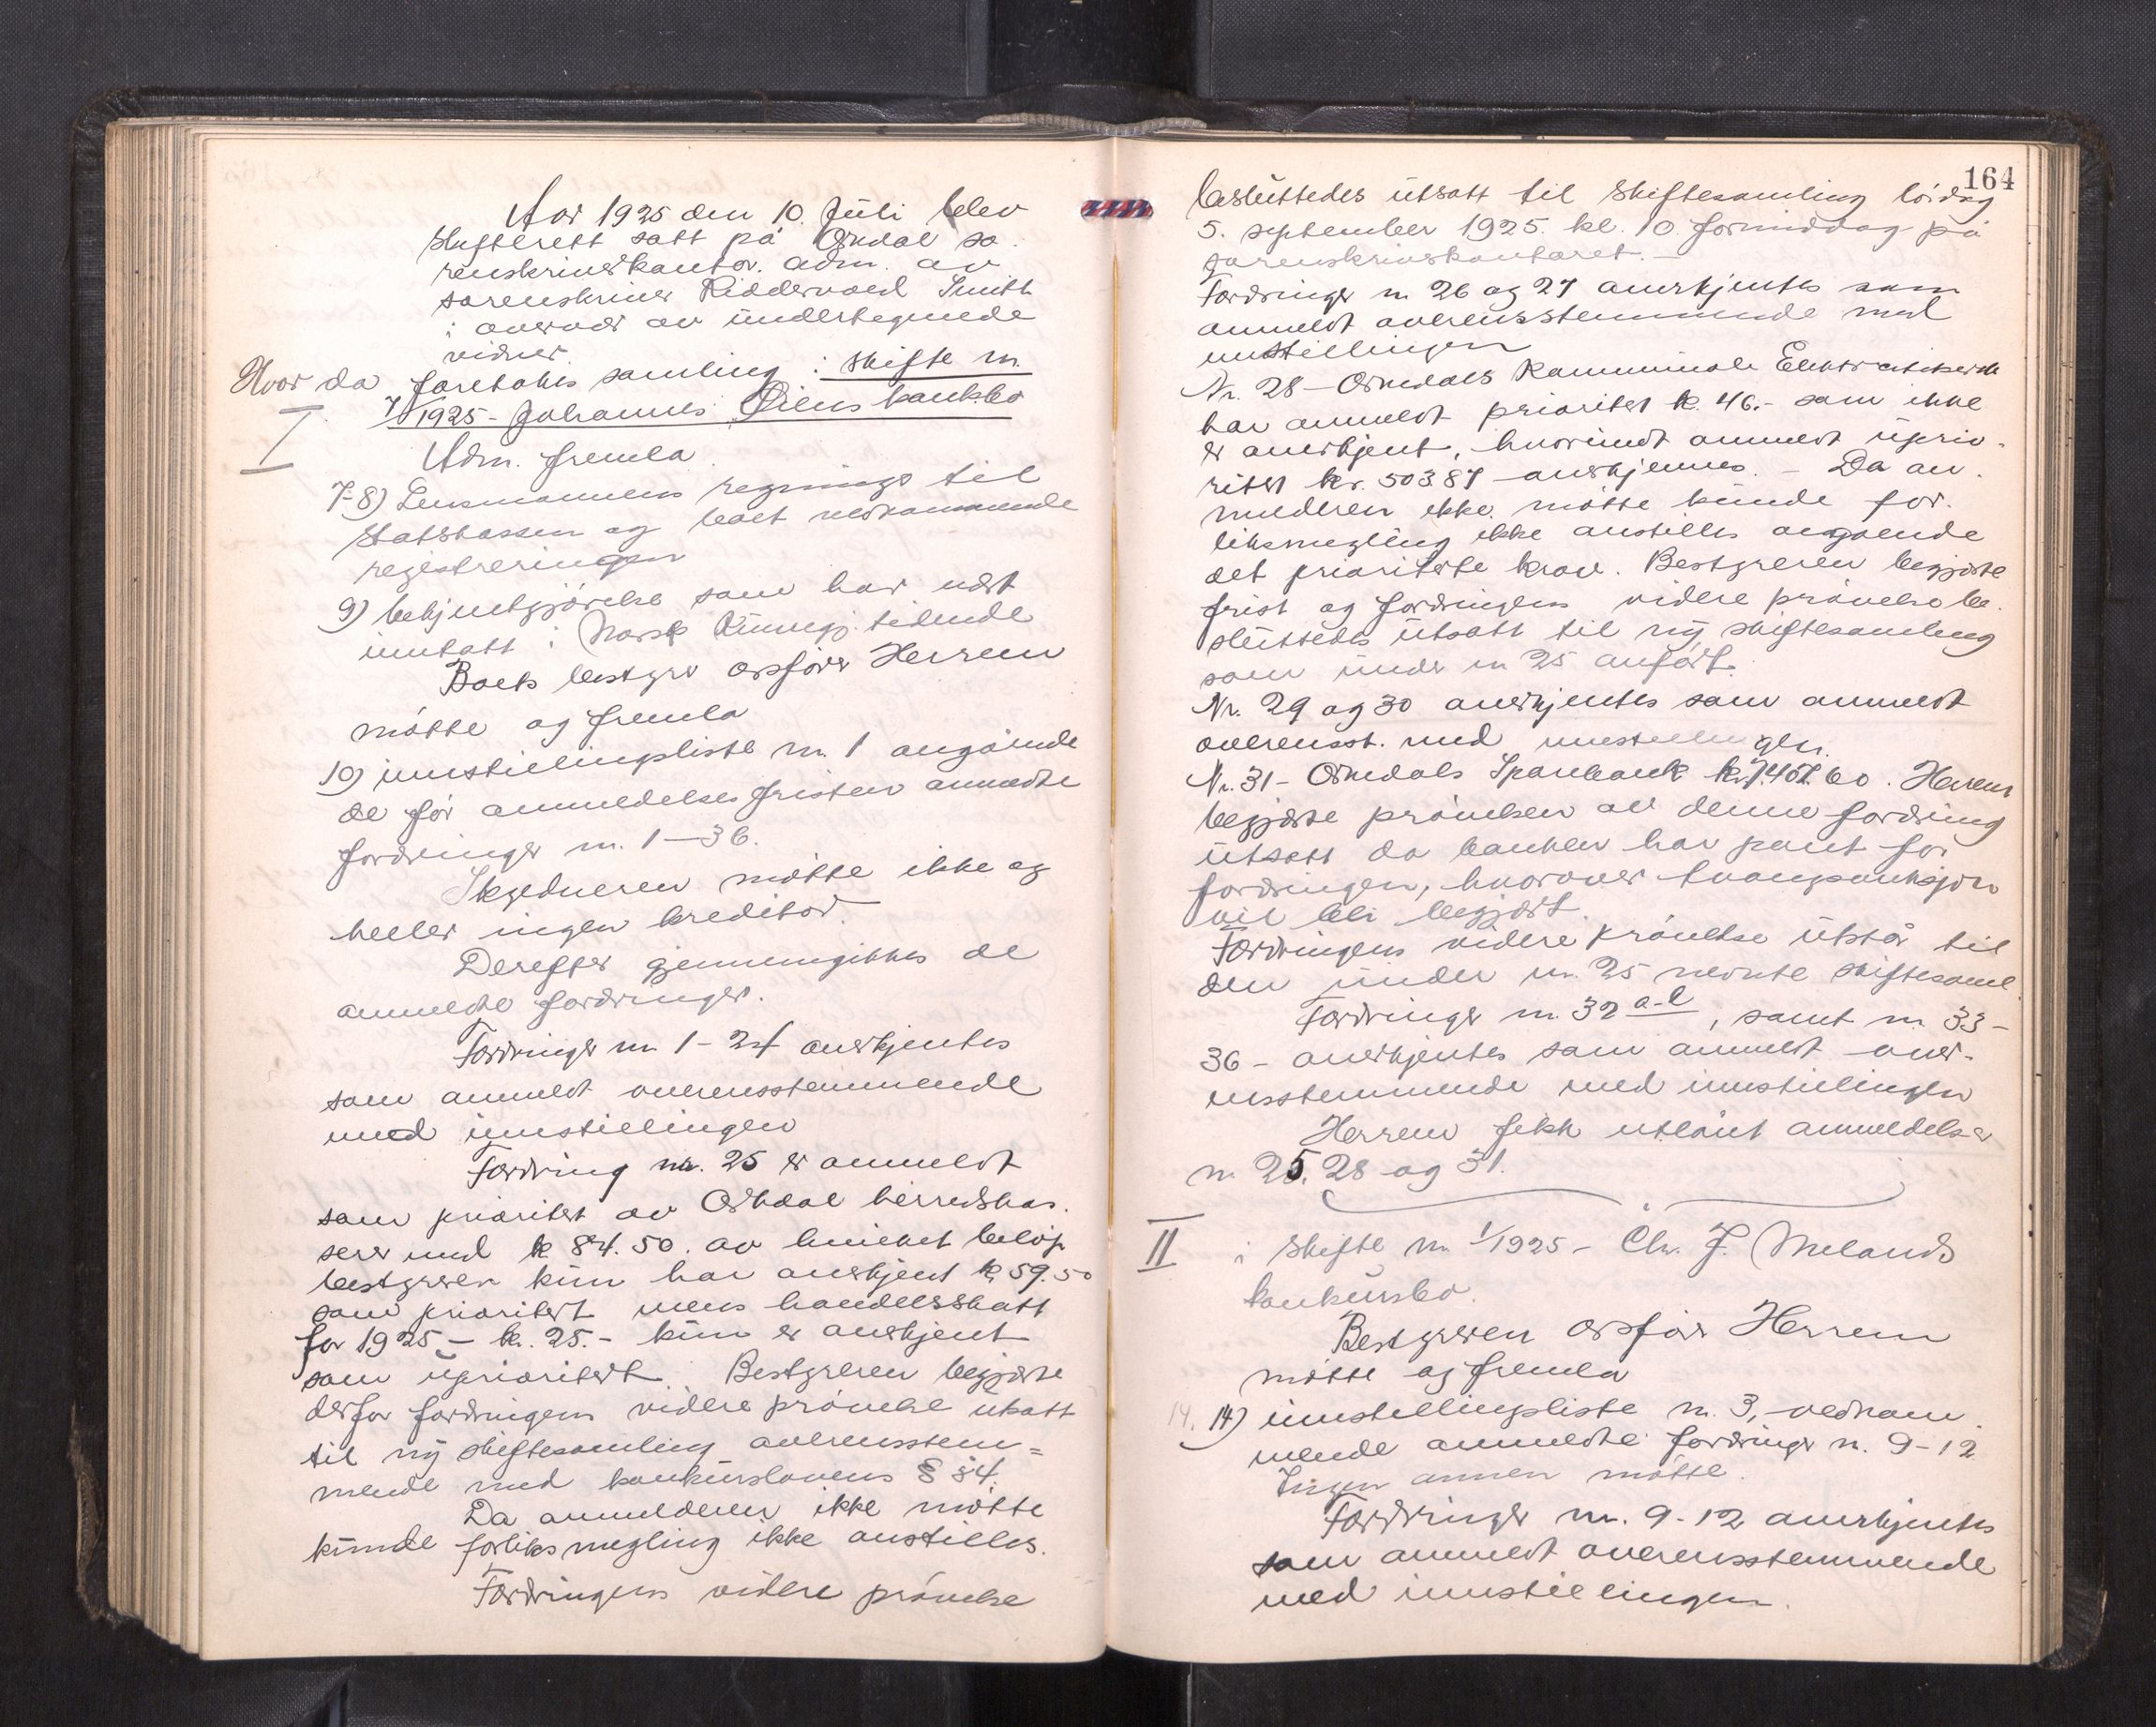 Aar 1925 den 10. Juli blev
skifterett satt på Orkdal so-
renskriverkontor. adm. av
sorenskriver Riddervold Smith
i overvær av undertegnede
vidner.
Hvor da foretokes samling i skifte nr.
7/1925 - Johannes Øiens konk.bo
I
Adm. fremla
7-8) Lensmannens regnings til
statskassen og boet vedkommende
registreringen
9) bekjentgjørelse som har vært
inntatt i Norsk Kunngj. tidende
Boets bestyrer o.r.sfører Herrem
møtte og fremla
10) innstillingsliste nr. 1 angående
de før anmeldelsesfristen anmeldte
fordringer nr. 1-36.
Skyldneren møtte ikke og
heller ingen kreditor.
Derefter gjennemgikkes de
anmeldte fordringer.
Fordringer nr 1-24 anerkjentes
som anmeldt overensstemmende
med innstillingen
Fordring nr. 25 er anmeldt
som prioritert av Orkdal herredskas-
serer med kr 84.50. av hvilket beløp
bestyreren kun har anerkjent kr 59.50
som prioritert mens handelsskatt
for 1925 - kr. 25.- kun er anerkjent
som uprioritert. Bestyreren begjærte
derfor fordringens videre prøvelse utsatt
til ny skiftesamling overensstem=
mende med konkurslovens § 84.
Da anmelderen ikke møtte
kunde forliksmegling ikke anstilles.
Fordringens videre prøvelse
164
besluttedes utsatt til skiftesamling lørdag
5. september 1925. kl. 10. formiddag på
sorenskriverkontoret.-
Fordringer nr 26 og 27 anerkjentes som
anmeldt overensstemmende med
innstillingen
Nr. 28 - Orkedals Kommunale Elektrisitetsverk
har anmeldt prioritert kr. 46.- som ikke
er anerkjent, hvorimot anmeldt uprio-
ritert kr. 503.87 anerkjennes. - Da an-
melderen ikke møtte kunde for-
liksmegling ikke anstilles angående
det prioriterte krav. Bestyreren begjærte
frist og fordringens videre prøvelse be-
sluttedes utsatt til ny skiftesamling
som under nr 25 anført.
Nr. 29 og 30 anerkjentes som anmeldt
overensst. med innstillingen.
Nr. 31 - Orkedals Sparebank kr. 60. Herrem
begjærte prøvelsen av denne fordring
utsatt da banken har pant for
fordringen, hvorover tvangsauksjon
vil bli begjært.
Fordringens videre prøvelse utstår til
den under nr. 25 nevnte skiftesaml.
Fordringer nr. 32 a-l, samt nr. 33-
36 - anerkjentes som anmeldt over-
ensstemmende med innstillingen
Herrem fikk utlånt anmeldelser
nr. 25, 28 og 31.
II
i skifte nr. 1/1925 - Chr. J. Melands
konkursbo.
Bestyreren o.r.sfører Herrem
møtte og fremla
14. 14) innstillingsliste nr. 3, vedkom-
mende anmeldte fordringer nr. 9-12
Ingen annen møtte.
Fordringer nr. 9-12 anerkjentes
som anmeldt overensstemmende
med innstillingen.